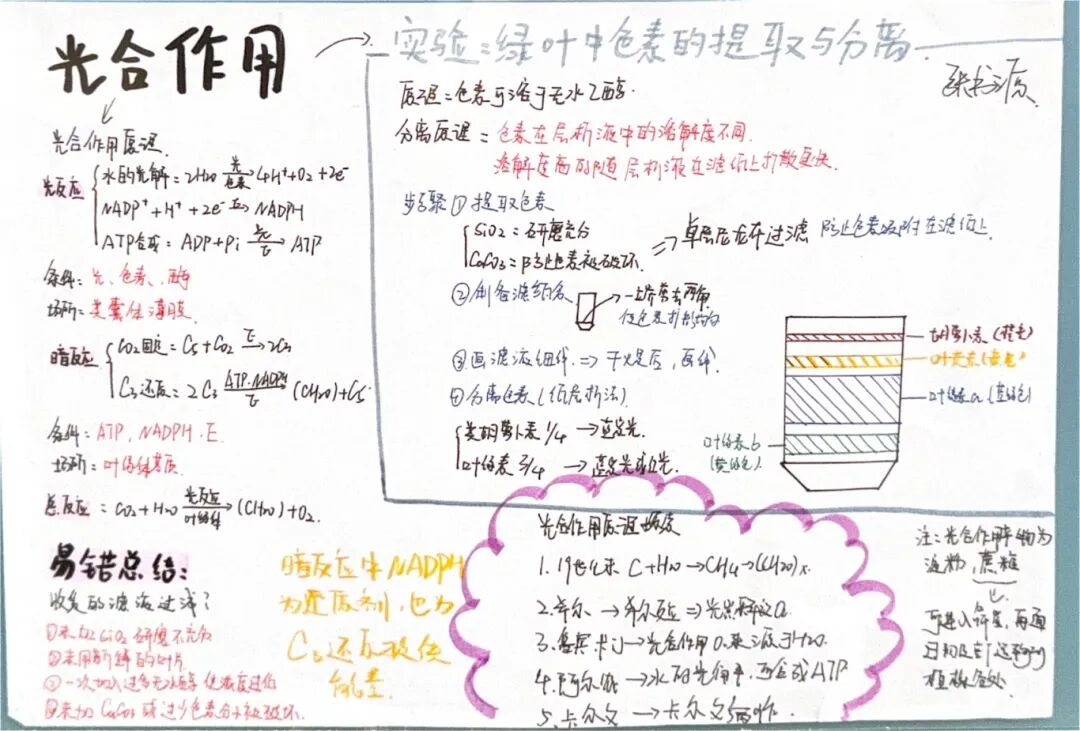 光合作用
光合作用原理
光反应
水的光解:2H2O 光 色素 4H⁺+O2+2e⁻
NADP⁺+H⁺+2e⁻ E→ NADPH
ATP合成:ADP+Pi 能 E → ATP
条件:光、色素、酶
场所:类囊体薄膜
暗反应
CO2固定:C5+CO2 E→ 2C3
C3还原:2C3 ATP.NADPH E → (CH2O)+C5
条件:ATP,NADPH.E
场所:叶绿体基质
总反应:CO2+H2O 光反应 叶绿体 → (CH2O)+O2.
易错总结:
收集的滤液过浅?
①未加SiO2研磨不充分
②未用新鲜的叶片
③一次加入过多无水乙醇使浓度过低
④未加CaCO3或过少色素分子被破坏.
暗反应中NADPH
为还原剂,也为
C3还原提供
能量
实验:绿叶中色素的提取与分离
原理:色素可溶于无水乙醇.
分离原理:色素在层析液中的溶解度不同.
溶解度高的随层析液在滤纸上扩散更快.
步骤①提取色素
SiO2:研磨充分
CaCO3:防止色素被破坏.
⇒单层尼龙布过滤 防止色素吸附在滤纸上.
②制备滤纸条
→一端剪去两角
使色素扩散均匀
③画滤液细线 ⇒干燥后,画线
④分离色素(纸层析法)
类胡萝卜素 1/4 →蓝紫光.
叶绿素 3/4 →蓝紫光和红光.
胡萝卜素(橙色)
叶黄素(黄色)
叶绿素a(蓝绿色)
叶绿素b
(黄绿色)
光合作用原理
1.19世纪末 C+H2O→CH4→(CH2O)x.
2.希尔→希尔反应⇒
3.鲁宾 卡门→光合作用O2来源于H2O.
4.阿尔农→水的光解中,可合成ATP
5.卡尔文→卡尔文循环.
注:光合作用产物为
淀粉,蔗糖
可进入筛管,再通
过韧皮部运输到
植株各处